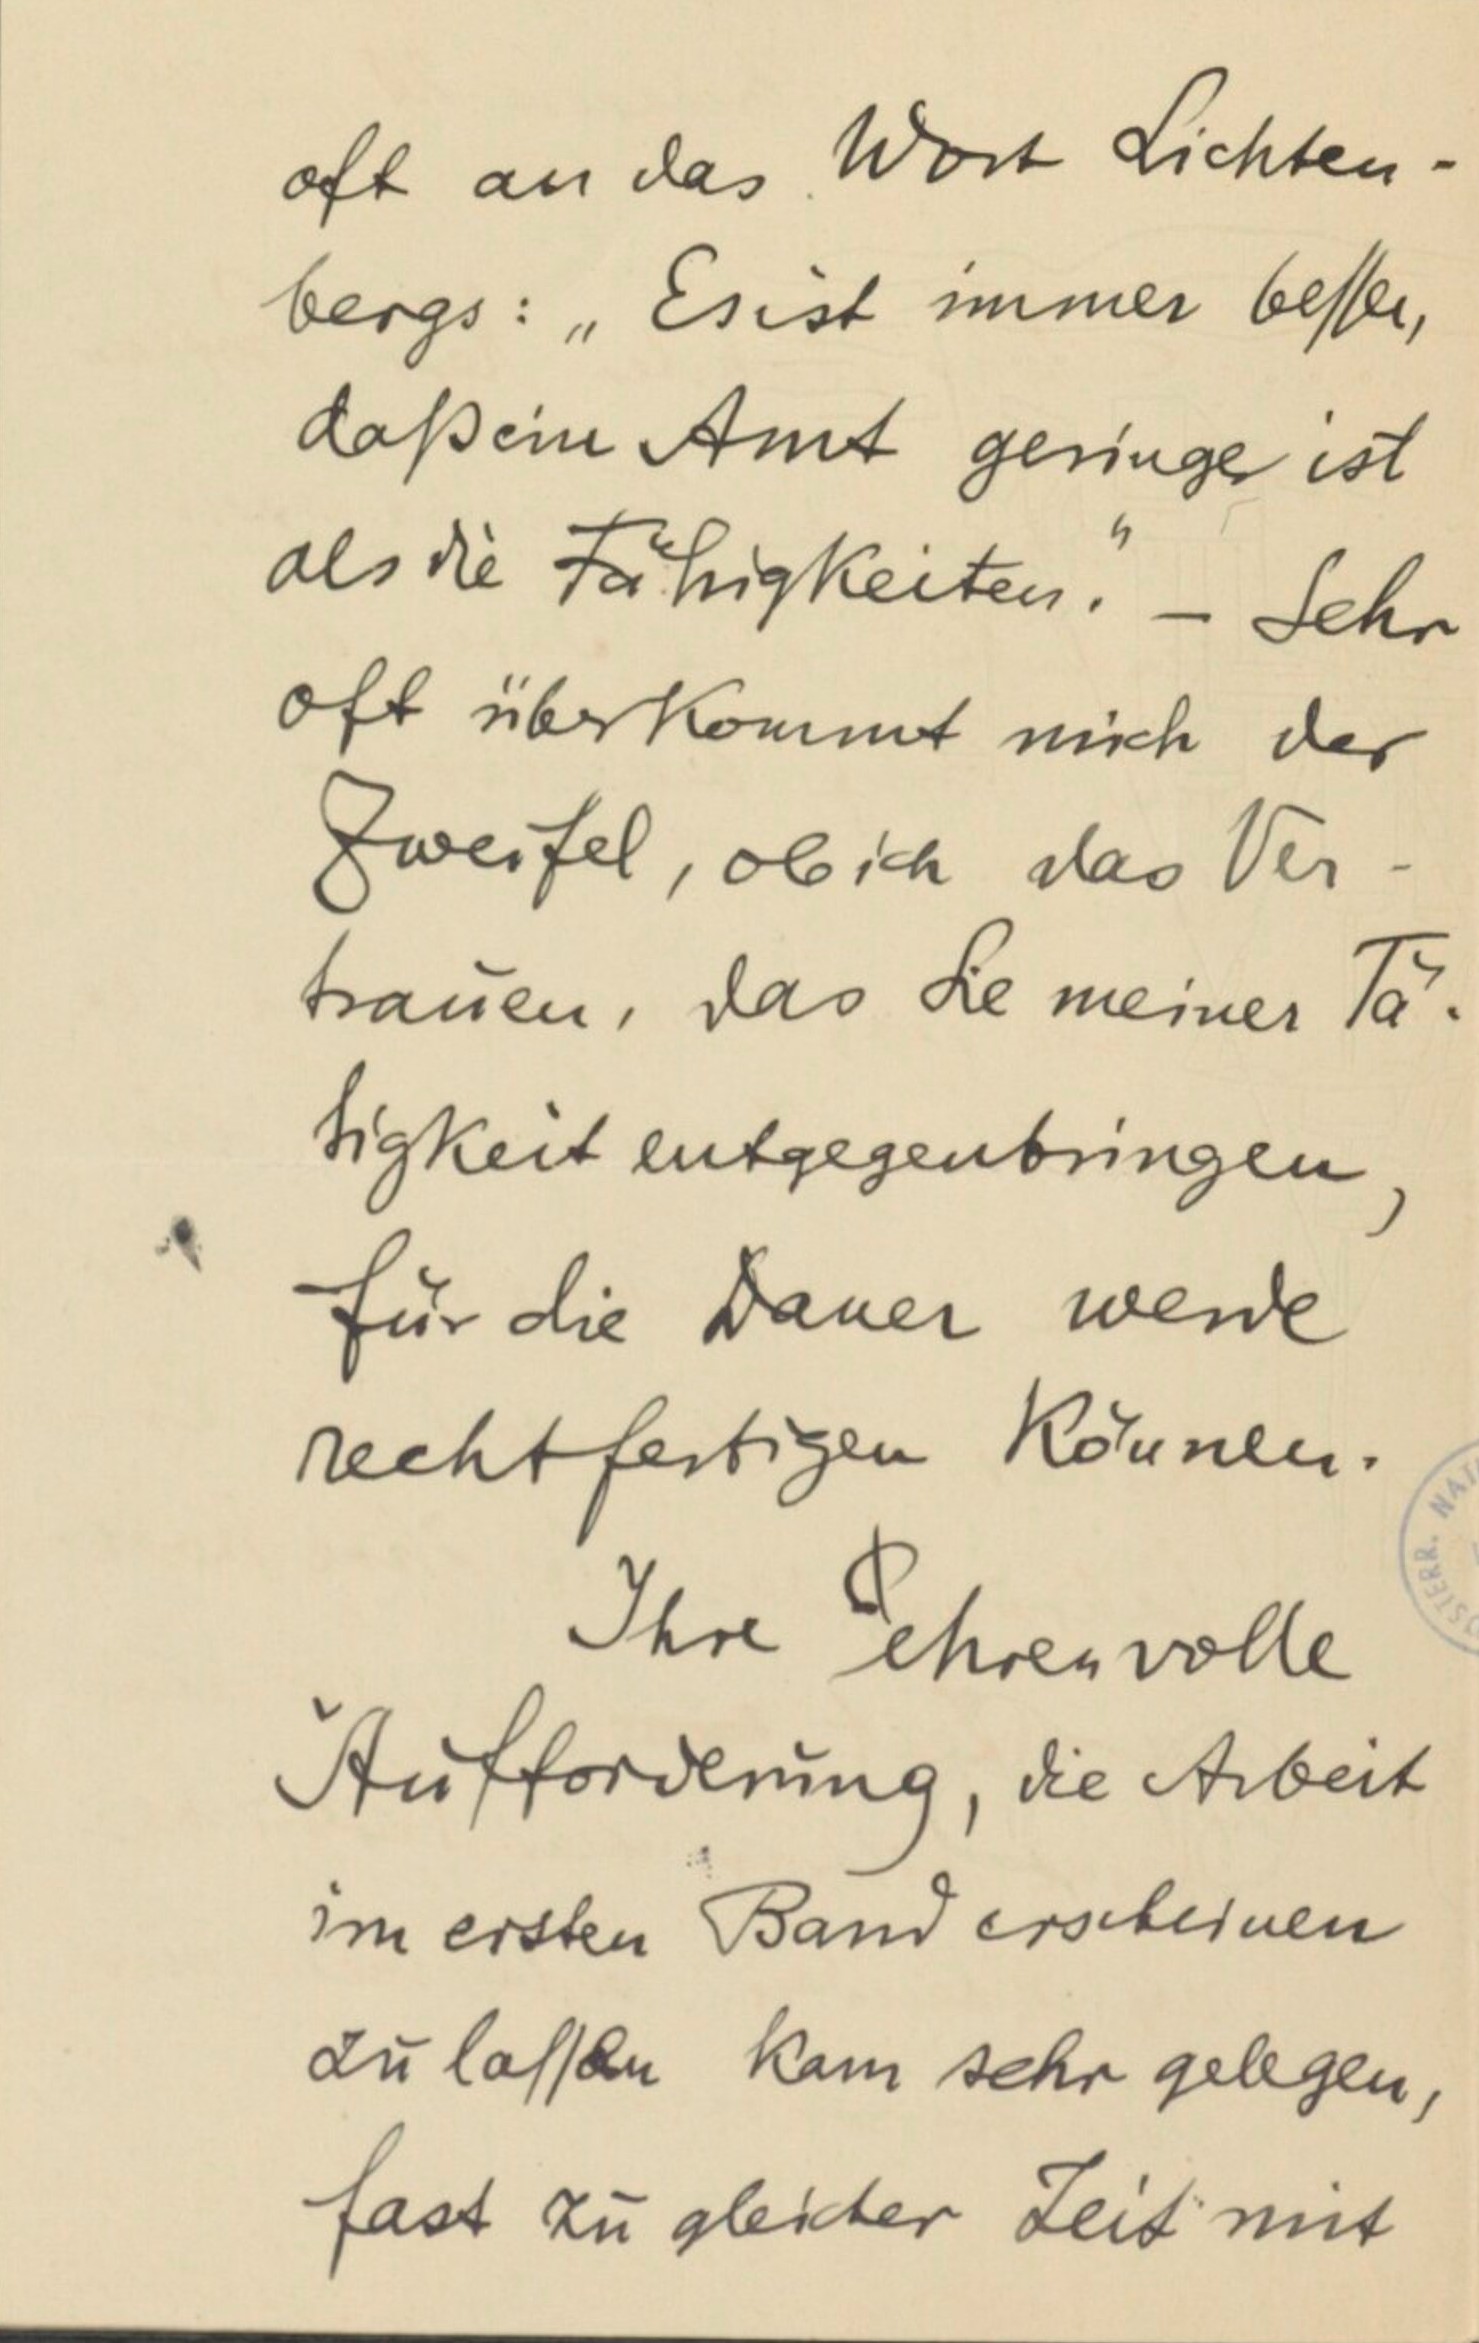 oft an das Wort Lichten-
bergs: „Es ist immer besser,
daß ein Amt geringer ist
als die Fähigkeiten." – Sehr
oft überkommt mich der
Zweifel, ob ich das Ver-
trauen, das Sie meiner Tä-
tigkeit entgegenbringen,
für die Dauer werde
rechtfertigen können.
Ihre ehrenvolle
Aufforderung, die Arbeit
im ersten Band erscheinen
zu lassen kam sehr gelegen,
fast zu gleicher Zeit mit
ÖSTERR.